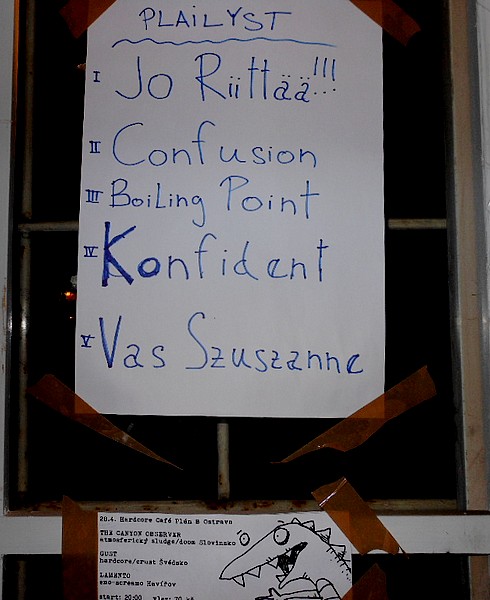 PLAILYST
I Jo Riittää!!!
II Confusion
III Boiling Point
IV Konfident
V Vas Szuszanne
20.4. Hardcore Café Plán B Ostrava
THE CANYON OBSERVER
atmosferický sludge/doom Slovinsko
GUST
hardcore/crust Švédsko
LAMENTO
emo-screamo Havířov
start: 20:00 vlez: 70 kč